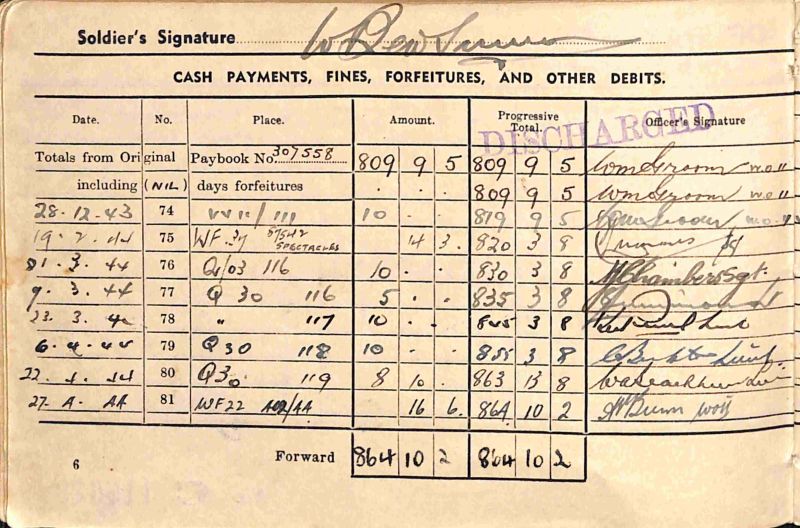 Soldier's Signature
CASH PAYMENTS, FINES, FORFEITURES, AND OTHER DEBITS.
Date. No. Place. Amount. Progressive Total. Officer's Signature
DISCHARGED
Totals from Original Paybook No. 307558 809 9 5 809 9 5 Wm Groom W.O.II
including (NIL) days forfeitures . . . 809 9 5 Wm Groom W.O.II
28.12.43 74 10 . . 819 9 5
19.2.44 75 WF.37 SPECTACLES 14 3. 820 3 8
31.3.44 76 Q/03 116 10 . . 830 3 8 Chambers Sgt
9.3.44 77 Q 30 116 5 . . 835 3 8
23.3.44 78 " 117 10 . . 845 3 8 Lieut
6.4.44 79 Q30 118 10 . . 855 3 8 Lieut
22.4.44 80 Q30 119 8 10 . 863 13 8
27.4.44 81 WF22 A02/44 16 6. 864 10 2 Dunn WOII
6 Forward 864 10 2 864 10 2